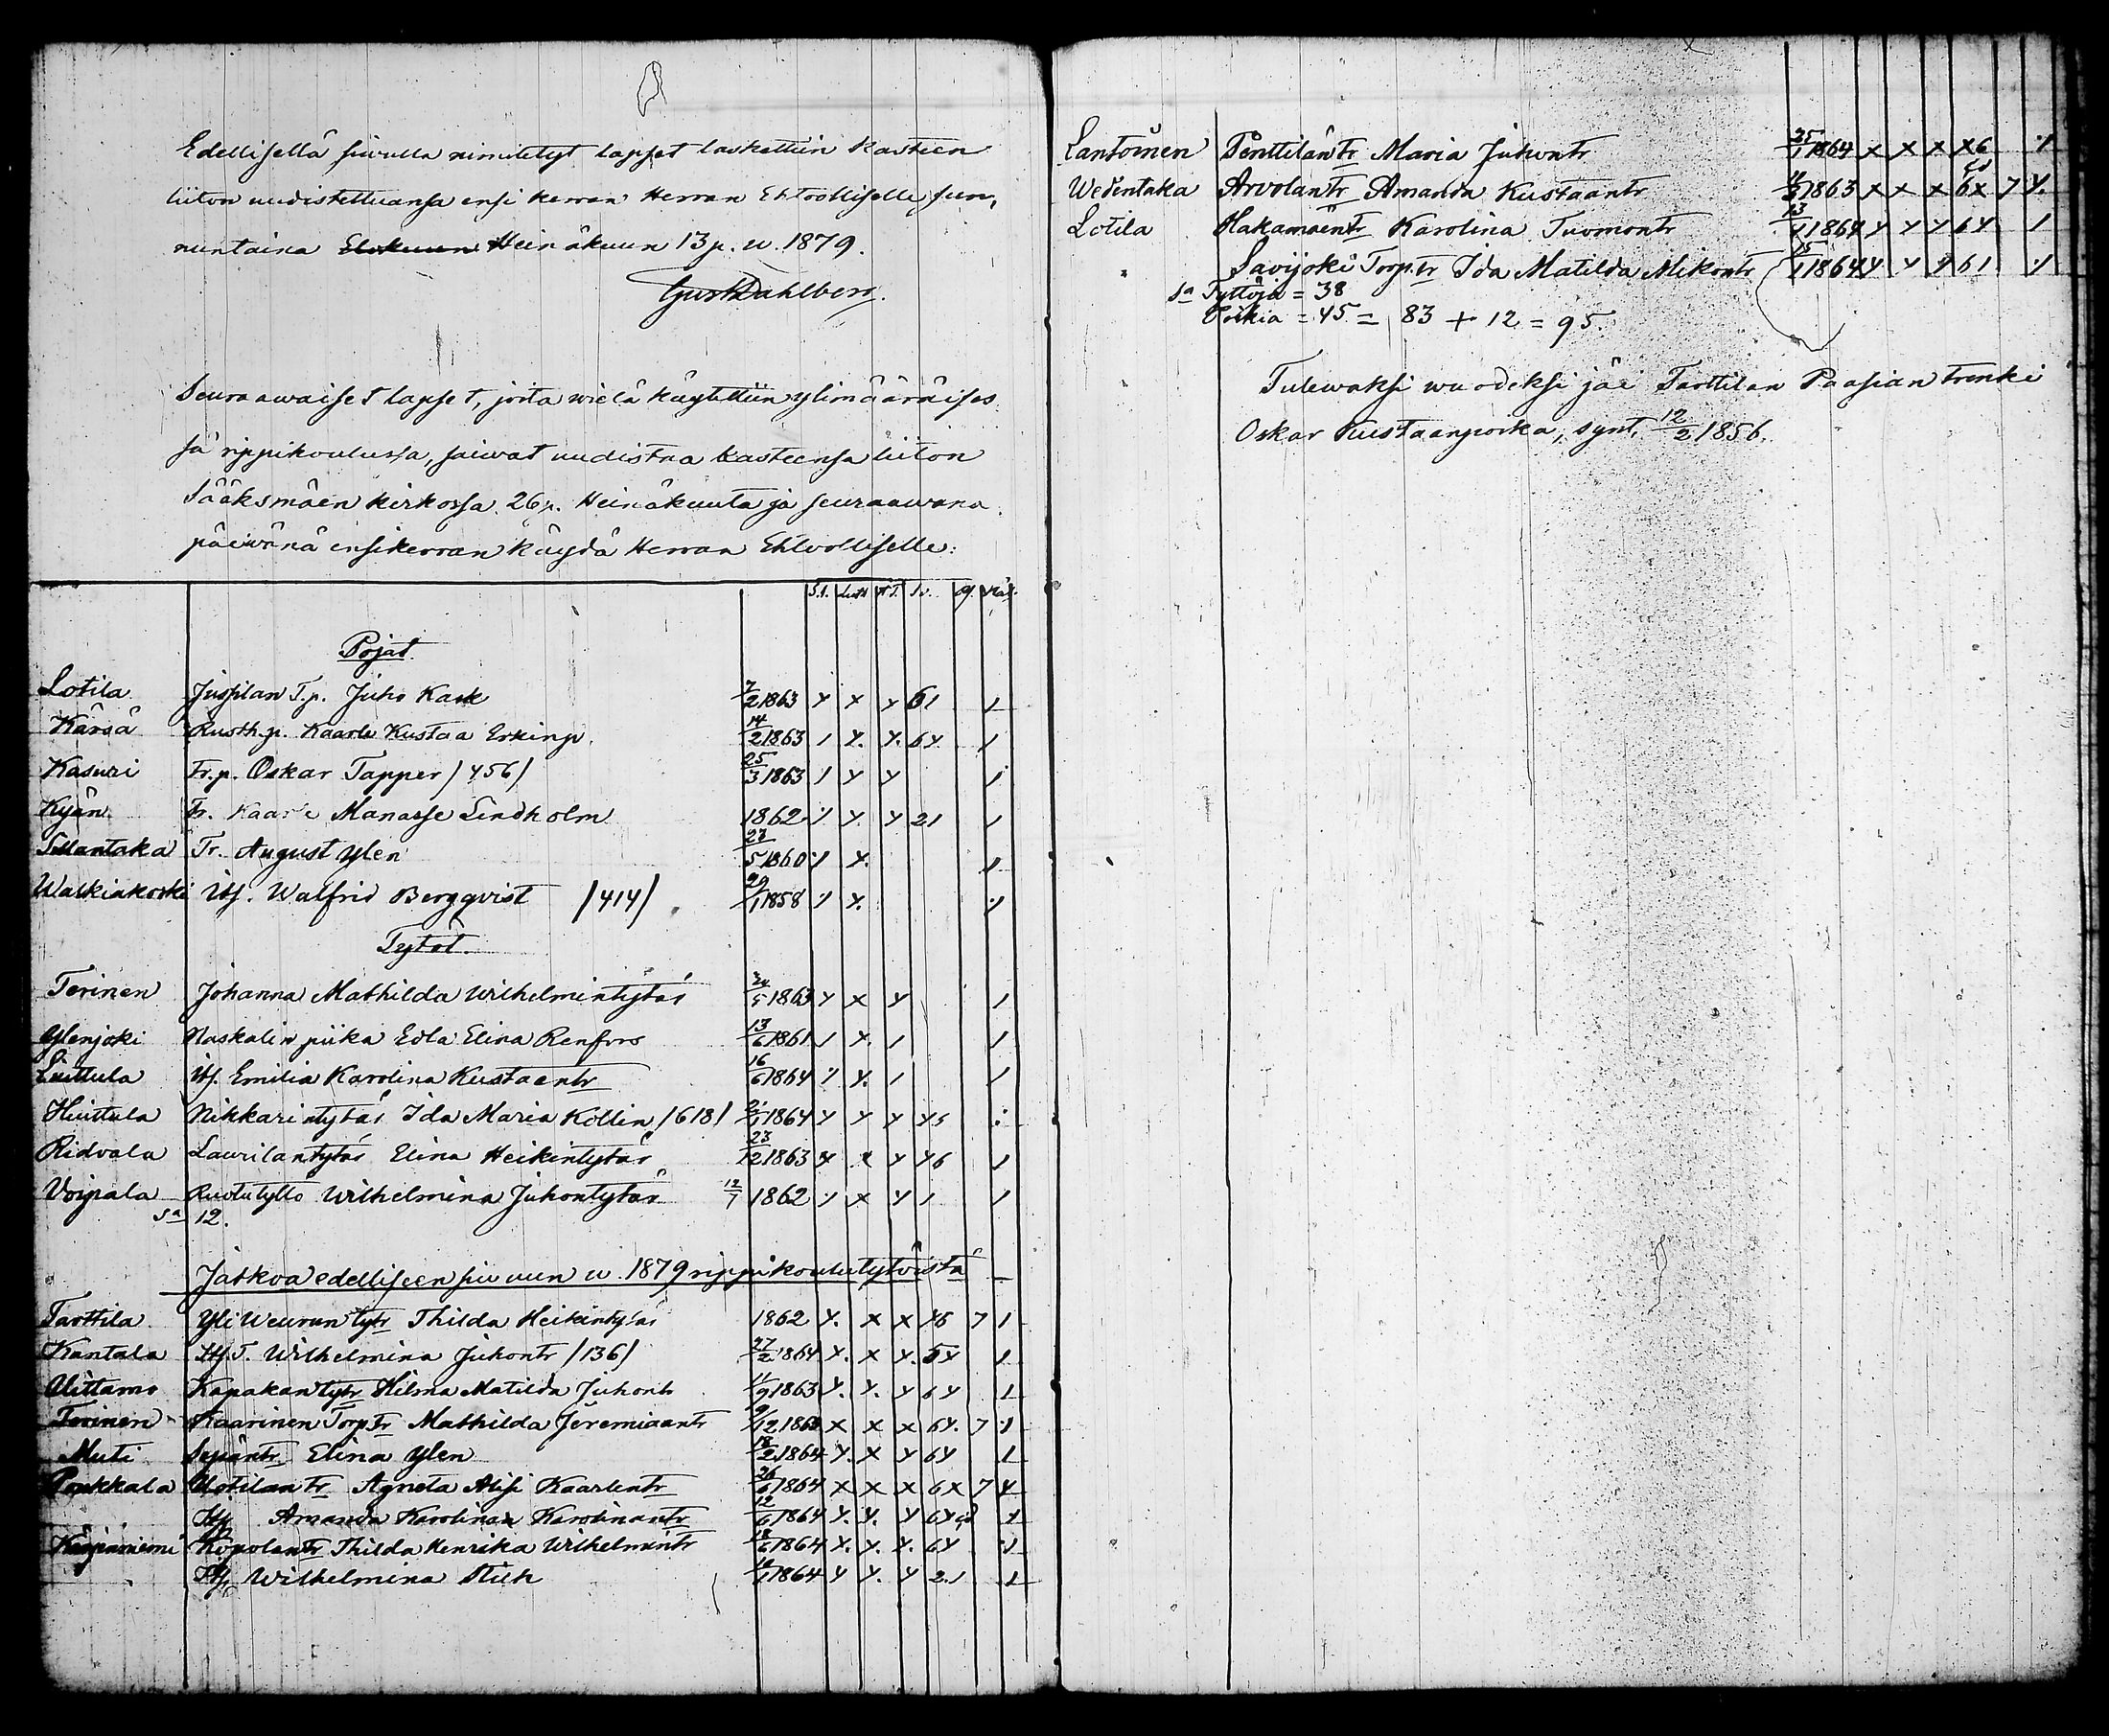 Edellisellä siwulla nimitetyt lapset laskettiin kasteen
liiton uudistettuansa ensi kerran Herran Ehtoolliselle sun,
nuntaina Elokuun Heinäkuun 13 p. w. 1879.
Gust Dahlberg.
Seuraawaiset lapset, joita wielä käytettiin ylimääräises
sä rippikoulussa, saiwat uudistaa kasteensa liiton
Sääksmäen kirkossa 26 p. Heinäkuuta ja seuraawana
päiwänä ensikerran käydä Herran Ehtoolliselle:
S.l. Luth
Pojat.
Lotila Jussilan T.p. Juho Kask 7/2 1863 y x y 61 1
Kärsä Rusth.p. Kaarle Kustaa Erkinp. 14/2 1863 1 y. y. 6y 1
Kasuri Tr.p. Oskar Tapper /456/ 25/3 1863 1 y y 1
Kyän Tr. Kaarle Manasse Lindholm 1862 y y. y 21 1
Sillantaka Tr. August Ylen 23/5 1860 y y. 1
Walkiakoski Itf. Walfrid Bergqvist /414/ 29/1 1858 y y. 1
Tytöt.
Terinen Johanna Mathilda Wilhelmintytär 24/5 1863 y x y 1
Ylenjoki Naskalin piika Edla Elina Renfors 13/6 1861 1 x. 1 1
Liuttula Itf. Emilia Karolina Kustaantr 16/6 1864 y y. 1 1
Huittula Nikkarintytär Ida Maria Kollin /618/ 1864 y y y y5
Ridvala Laurilantytär Elina Heikintytär 23/12 1863 y x y y6 1
Voipala Ruotutyttö Wilhelmina Juhontytär 12/7 1862 y x y 1 1
Sa 12.
Jatkoa edelliseen siwuun w. 1879 rippikoulutytöistä
Tarttila Yli Weurun tytr Thilda Heikintytär 1862 y. x x y6 7 1
Kantala Itf. T. Wilhelmina Juhontr /136/ 27/2 1864 y. x y. 5y 1
Uittamo Kapakan tytr Hilma Matilda Juhontr 11/9 1863 y. y. y 6y 1
Terinen Kaarinen Torp.tr Mathilda Jeremiaantr 9/12 1863 x x x 6y. 7 1
Muti Sepäntr. Elina Ylen 18/2 1864 y. x y 6y 1
Pakkala Uotilan tr Agneta Alisi Kaarlentr 26/6 1864 x x x 6x 7 y
Itf. Amanda Karolina Karolinantr 12/6 1864 y. y. y 6y y
Käpäniemi Ropolantr Thilda Henrika Wilhelmintr 18/6 1864 y. y. y. 6y 1
Itf. Wilhelmina Stick 1864 y y. y 2.1 1
Lantoinen Penttilän tr Maria Juhontr 25/1 1864 x x x x6 y
Wedentaka Arvolan tr Amanda Kustaantr 1863 x x x 6x 7 y.
Lotila Hakamäentr Karolina Tuomontr 13/1 1864 y y y 6y 1
Savijoki Torp.tr Ida Matilda Mikontr 15/1 1864 y y y 61 y
Sa Tyttöjä = 38
Poikia = 45 = 83 + 12 = 95.
Tulewaksi wuodeksi jäi Tarttilan Paasian trenki
Oskar Kustaanpoika, synt. 12/2 1856.